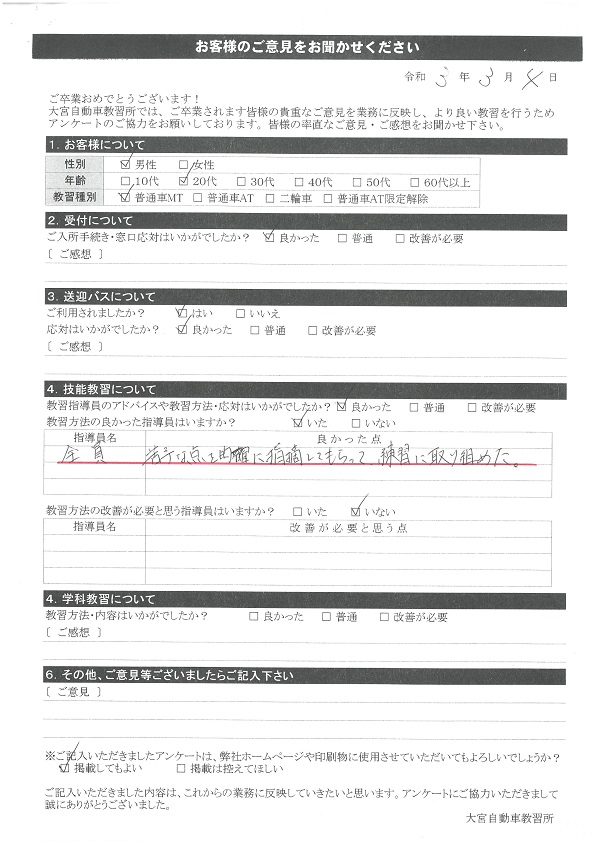 お客様のご意見をお聞かせください
令和 5 年 3 月 4 日
ご卒業おめでとうございます！
大宮自動車教習所では、ご卒業されます皆様の貴重なご意見を業務に反映し、より良い教習を行うため
アンケートのご協力をお願いしております。皆様の率直なご意見・ご感想をお聞かせ下さい。
1. お客様について
性別 ☑男性 □女性
年齢 □10代 ☑20代 □30代 □40代 □50代 □60代以上
教習種別 ☑普通車MT □普通車AT □二輪車 □普通車AT限定解除
2. 受付について
ご入所手続き・窓口応対はいかがでしたか？ ☑良かった □普通 □改善が必要
[ ご感想 ]
3. 送迎バスについて
ご利用されましたか？ ☑はい □いいえ
応対はいかがでしたか？ ☑良かった □普通 □改善が必要
[ ご感想 ]
4. 技能教習について
教習指導員のアドバイスや教習方法・応対はいかがでしたか？ ☑良かった □普通 □改善が必要
教習方法の良かった指導員はいますか？ ☑いた □いない
指導員名 良かった点
全員 苦手な点を的確に指摘してもらって、練習に取り組めた。
教習方法の改善が必要と思う指導員はいますか？ □いた ☑いない
指導員名 改善が必要と思う点
4. 学科教習について
教習方法・内容はいかがでしたか？ □良かった □普通 □改善が必要
[ ご感想 ]
6. その他、ご意見等ございましたらご記入下さい
[ ご意見 ]
※ご記入いただきましたアンケートは、弊社ホームページや印刷物に使用させていただいてもよろしいでしょうか？
☑掲載してもよい □掲載は控えてほしい
ご記入いただきました内容は、これからの業務に反映していきたいと思います。アンケートにご協力いただきまして
誠にありがとうございました。
大宮自動車教習所